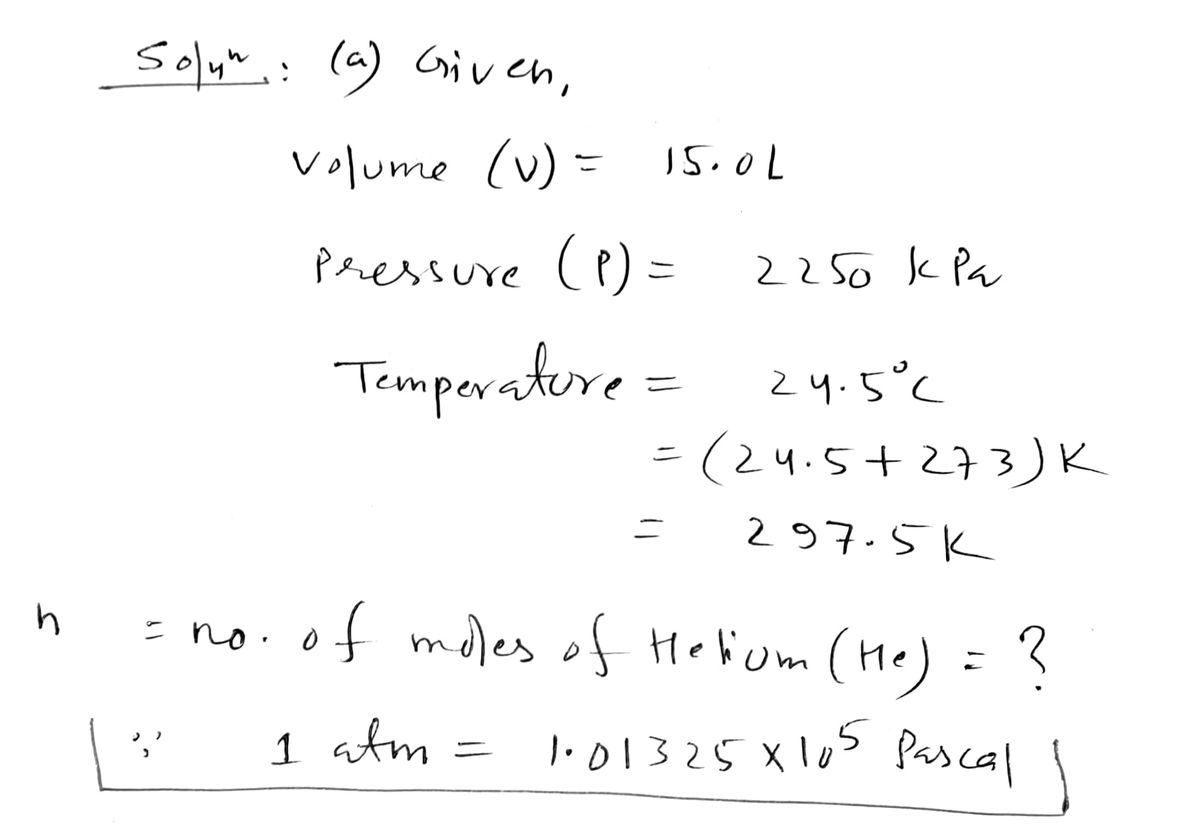 Solyn.: (a) Given,
Volume (V) = 15.0L
Pressure (P) = 2250 kPa
Temperature = 24.5°C
= (24.5+273)K
= 297.5K
n = no. of moles of Helium (He) = ?
∵ 1 atm = 1.01325 x 10⁵ Pascal